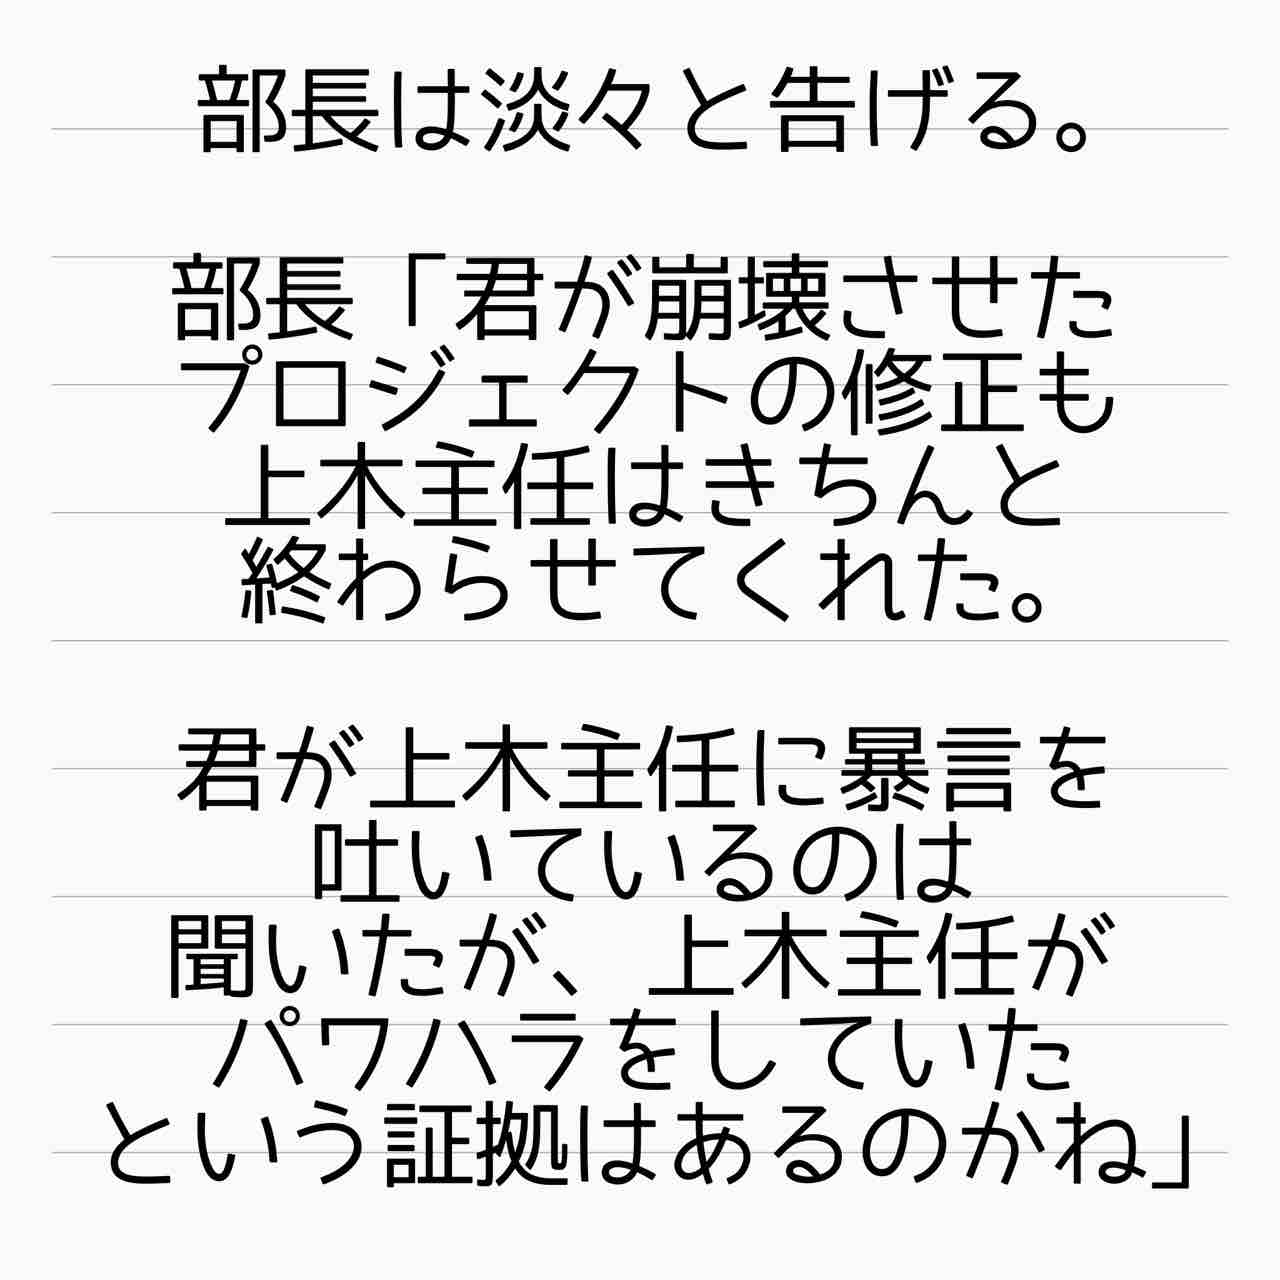 部長は淡々と告げる。
部長「君が崩壊させた
プロジェクトの修正も
上木主任はきちんと
終わらせてくれた。
君が上木主任に暴言を
吐いているのは
聞いたが、上木主任が
パワハラをしていた
という証拠はあるのかね」